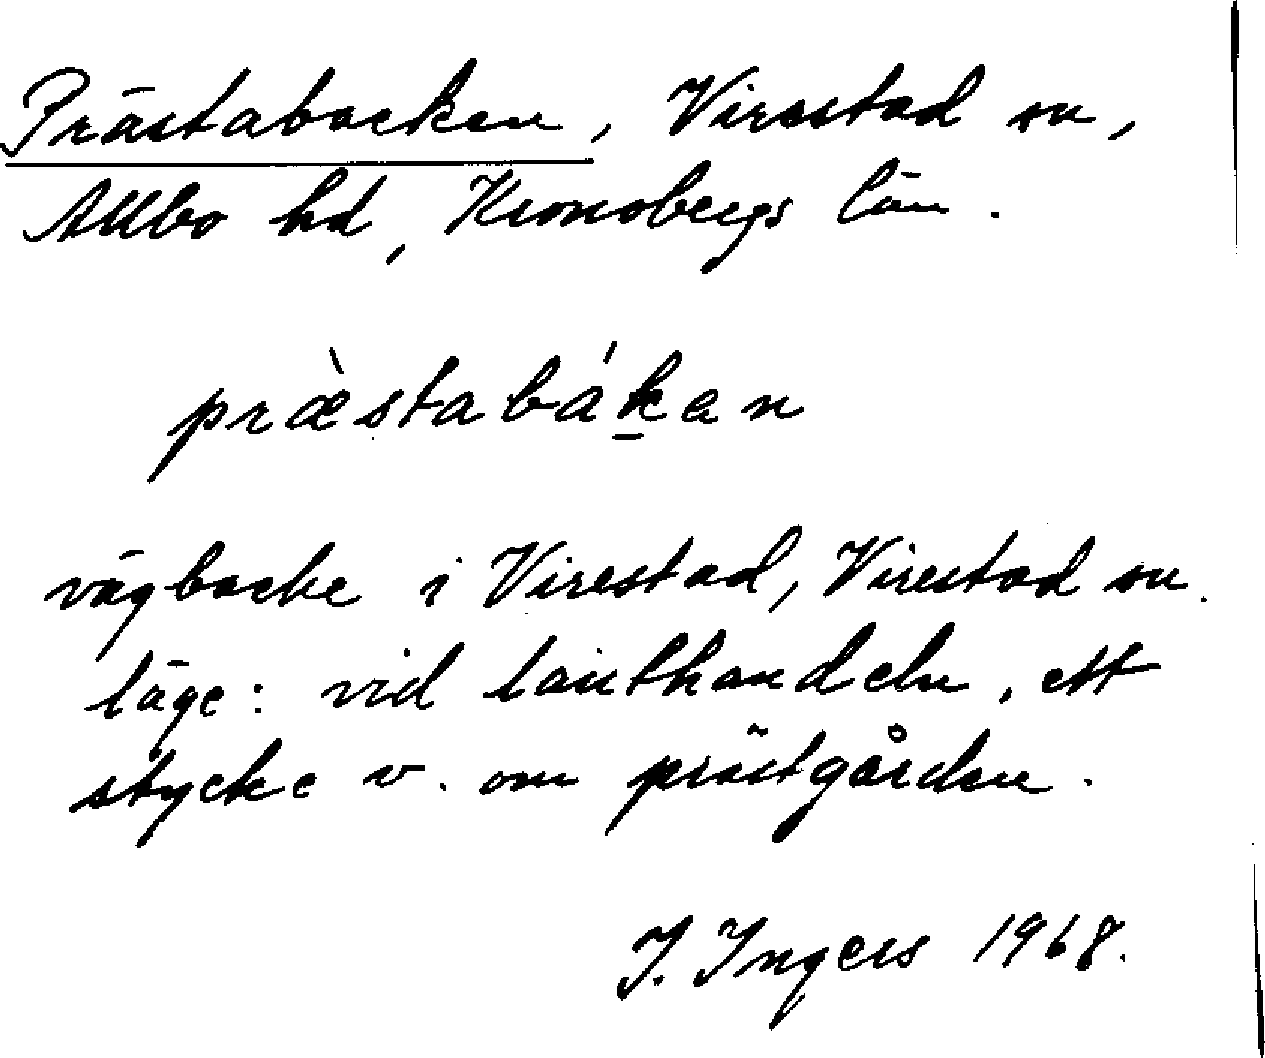 Prästabacken, Virestad sn,
Allbo hd, Kronobergs län.
præ̀stabák̠an
vägbacke i Virestad, Virestad sn.
läge: vid lanthandeln, ett
stycke v. om prästgården.
I. Ingers 1968.